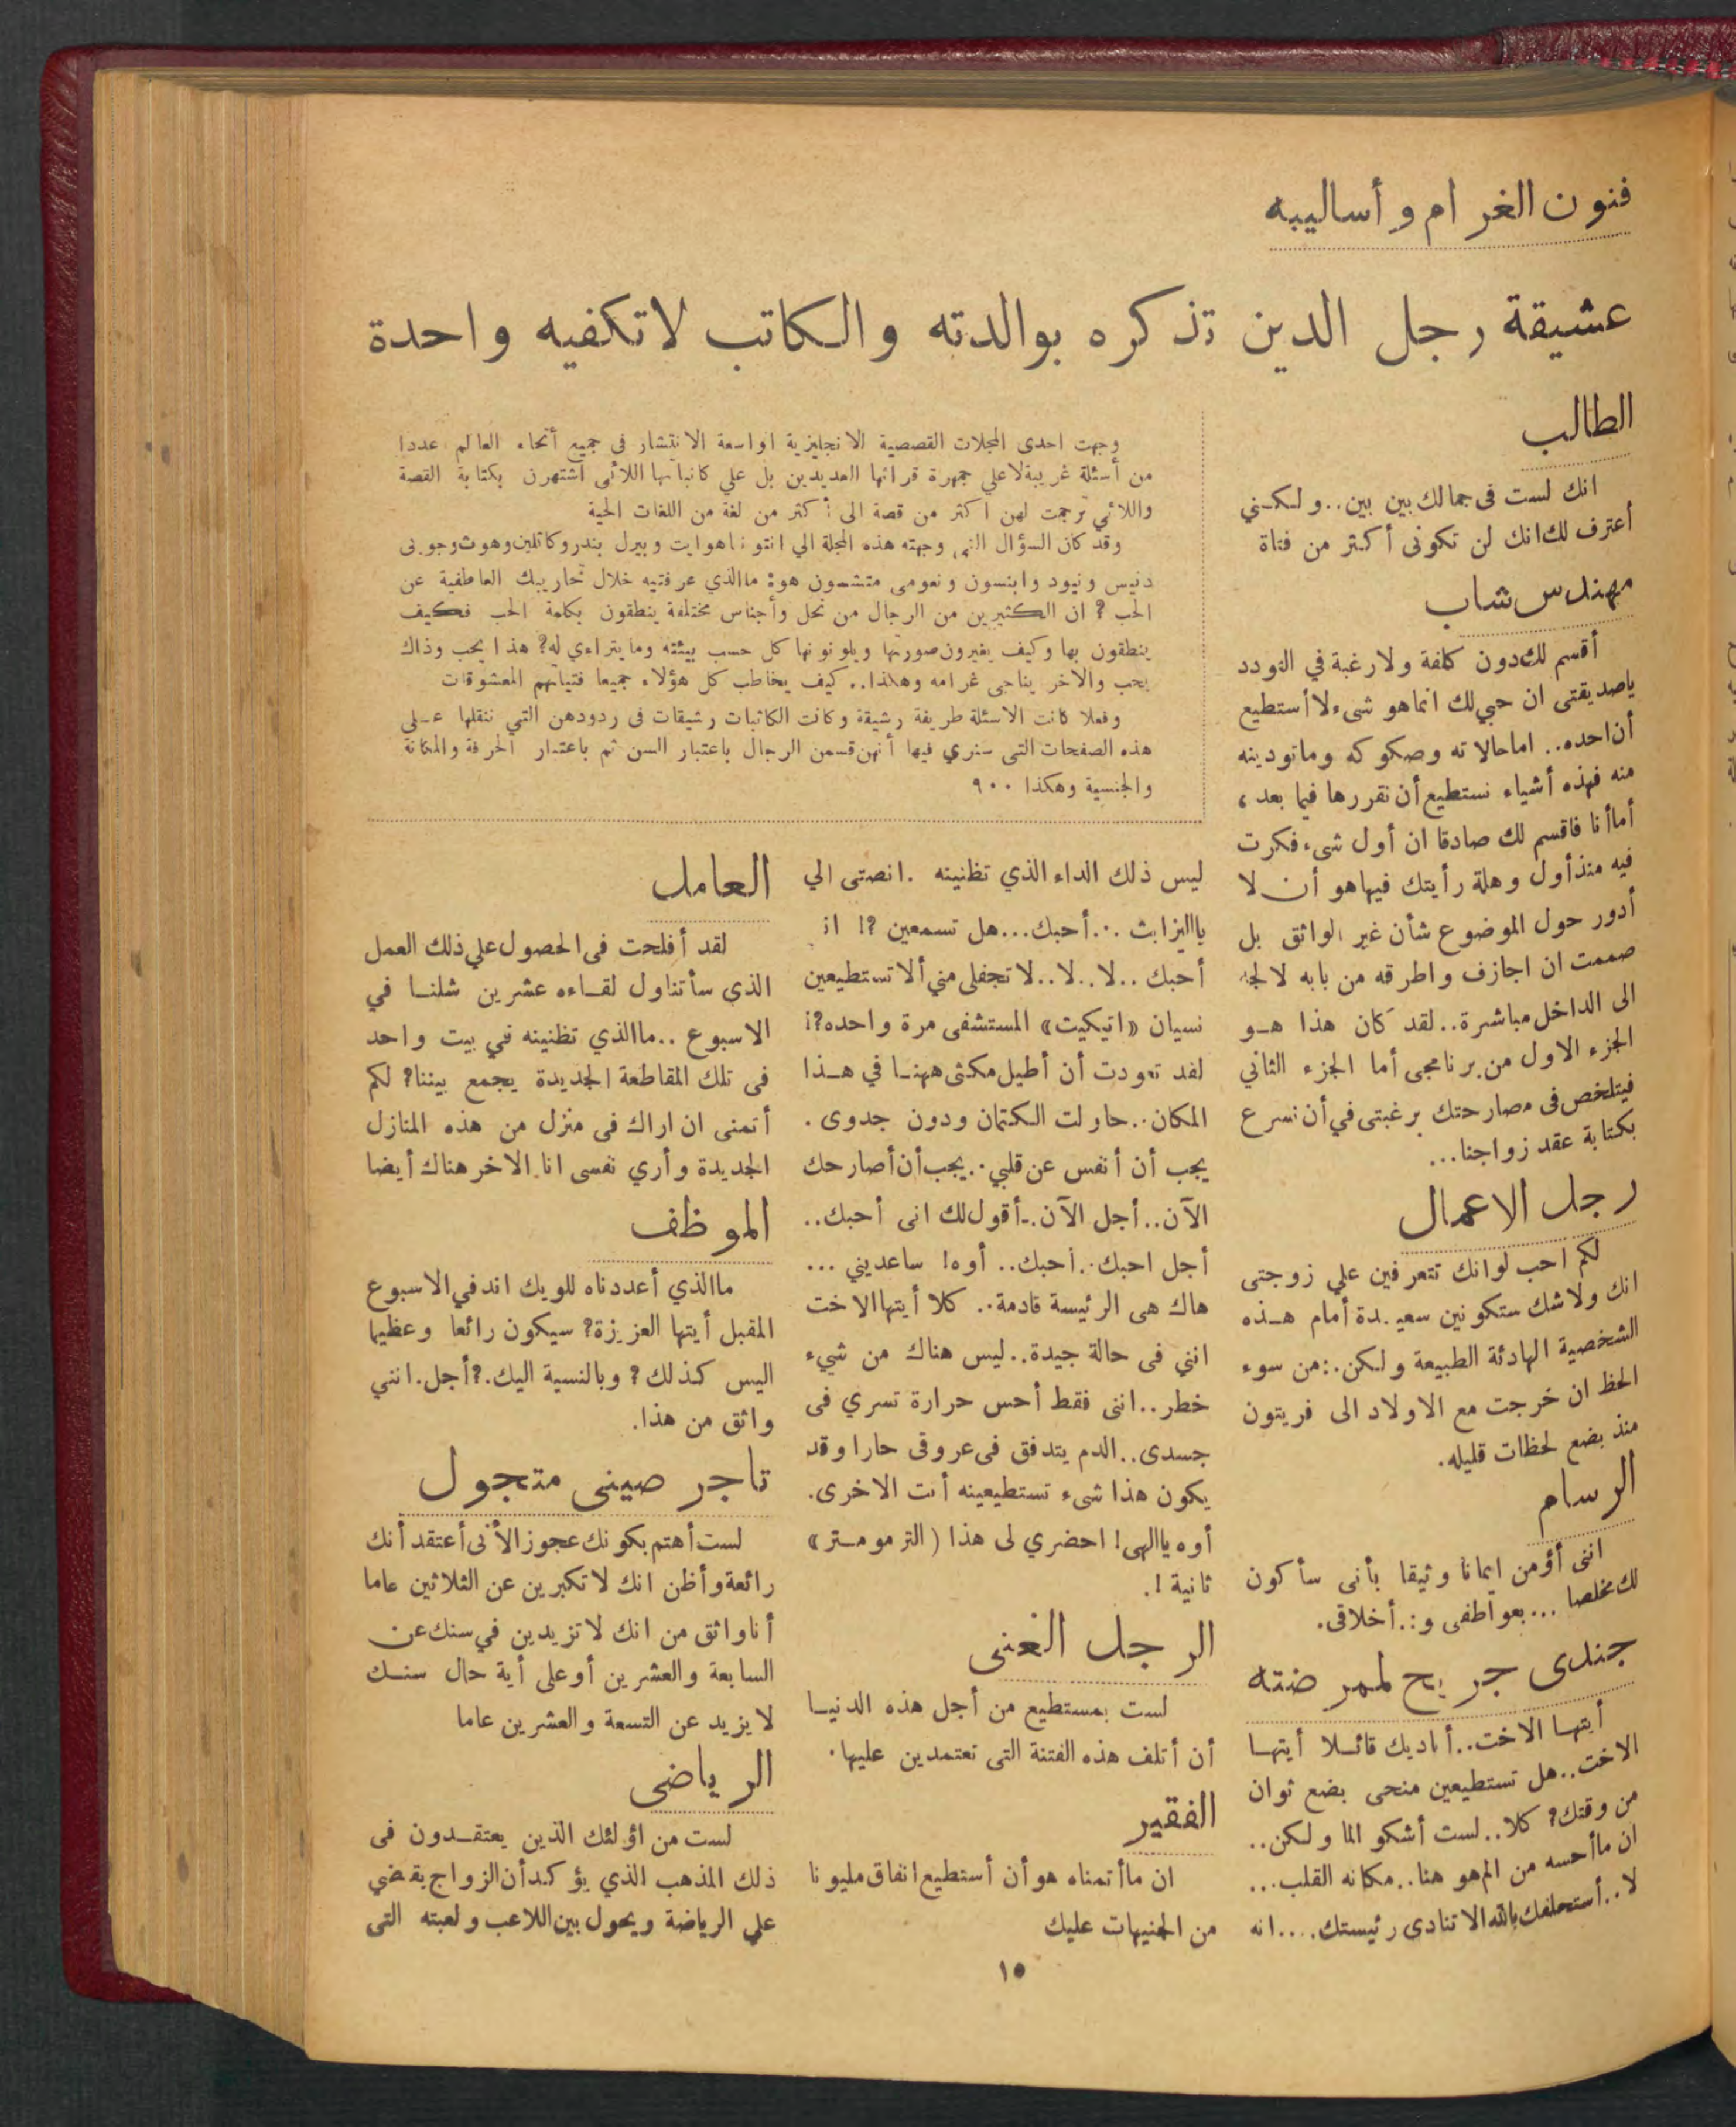 فنون الغرام وأساليبه
عشيقة رجل الدين تذكره بوالدته والكاتب لاتكفيه واحدة
وجهت احدى المجلات القصصية الانجليزية اواسعة الانتشار فى جميع أنحاء العالم عددا
من أسئلة غريبة لاعلي جمهرة قرائها العديدين بل علي كاتباتها اللائى اشتهرن بكتابة القصة
واللائي ترجمت لهن اكثر من قصة الى أكثر من لغة من اللغات الحية
وقد كان السؤال الذى وجهته هذه المجلة الي انتونا هوايت وبيرل بندر وكاتلين وهوث وجوبى
دنيس ونيود وابنسون ونعومى متشسون هو: ماالذي عرفتيه خلال تجاريبك العاطفية عن
الحب ? ان الكثيرين من الرجال من نحل وأجناس مختلفة ينطقون بكلمة الحب فكيف
ينطقون بها وكيف يغيرون صورتها ويلونونها كل حسب بيئته ومايتراءي له? هذا يحب وذاك
يحب والاخر يناجى غرامه وهكذا.. كيف يخاطب كل هؤلاء جميعا فتياتهم المعشوقات
وفعلا كانت الاسئلة طريفة رشيقة وكانت الكاتبات رشيقات فى ردودهن التي ننقلها عـلى
هذه الصفحات التى سنري فيها أنهن قسمن الرجال باعتبار السن ثم باعتبار الحرفة والمكانة
والجنسية وهكذا ٩٠٠
الطالب
انك لست فى جمالك بين بين.. ولكـني
أعترف لك انك لن تكونى أكثر من فتاة
مهندس شاب
أقسم لك دون كلفة ولا رغبة في التودد
ياصديقتى ان حبي لك انماهو شىء لا أستطيع
أن احده.. اما حالاته وصكوكه وماتودينه
منه فهذه أشياء نستطيع أن نقررها فيما بعد ،
أما أنا فاقسم لك صادقا ان أول شىء فكرت
فيه منذ أول وهلة رأيتك فيها هو أن لا
أدور حول الموضوع شأن غير الواثق بل
صممت ان اجازف واطرقه من بابه لالجه
الى الداخل مباشرة.. لقد كان هذا هـو
الجزء الاول من برنامجى أما الجزء الثاني
فيتلخص فى مصارحتك برغبتى في أن نسرع
بكتابة عقد زواجنا...
رجل الاعمال
لكم احب لوانك تتعرفين علي زوجتى
انك ولاشك ستكونين سعيدة أمام هـذه
الشخصية الهادئة الطبيعة ولكن.: من سوء
الحظ ان خرجت مع الاولاد الى فريتون
منذ بضع لحظات قليله.
الرسام
اننى أؤمن ايمانا وثيقا بأنى سأكون
لك مخلصا ... بعواطفى و:. أخلاقى.
جندى جريح لممرضته
أيتهـا الاخت.. أناديك قائـلا أيتهـا
الاخت.. هل تستطيعين منحى بضع ثوان
من وقتك? كلا.. لست أشكو الما ولكن..
ان ماأحسه من الم هو هنا.. مكانه القلب...
لا.. أستحلفك بالله الا تنادى رئيستك.... انه
ليس ذلك الداء الذي تظنينه . انصتى الي
يااليزابث ... أحبك... هل تسمعين ?! انى
أحبك .. لا.. لا.. لا تجفلى مني ألا تستطيعين
نسيان «اتيكيت» المستشفى مرة واحده?!
لقد تعودت أن أطيل مكثى ههنـا في هـذا
المكان.. حاولت الكتمان ودون جدوى .
يجب أن أنفس عن قلبي.. يجب أن أصارحك
الآن.. أجل الآن.. أقول لك انى أحبك..
أجل احبك.. احبك.. أوه! ساعديني ...
هاك هى الرئيسة قادمة.. كلا أيتها الاخت
انني فى حالة جيدة.. ليس هناك من شيء
خطر.. اننى فقط أحس حرارة تسري فى
جسدى.. الدم يتدفق فى عروقى حارا وقد
يكون هذا شىء تستطيعينه أنت الاخرى.
أوه ياالهى! احضري لى هذا (الترمومـتر»
ثانية !.
الرجل الغنى
لست بمستطيع من أجل هذه الدنيـا
أن أتلف هذه الفتنة التى تعتمدين عليها.
الفقير
ان ماأتمناه هو أن أستطيع انفاق مليونا
من الجنيهات عليك
العامل
لقد أفلحت فى الحصول علي ذلك العمل
الذى سأتناول لقـاءه عشرين شلنـا في
الاسبوع .. ماالذي تظنينه في بيت واحد
فى تلك المقاطعة الجديدة يجمع بيننا? لكم
أتمنى ان اراك فى منزل من هذه المنازل
الجديدة وأري نفسى انا الاخر هناك أيضا
الموظف
ماالذي أعددناه للويك اند في الاسبوع
المقبل أيتها العزيزة? سيكون رائعا وعظيما
اليس كذلك ? وبالنسية اليك.? أجل. انني
واثق من هذا.
تاجر صينى متجول
لست أهتم بكونك عجوز الأنى أعتقد أنك
رائعة وأظن انك لا تكبرين عن الثلاثين عاما
أنا واثق من انك لا تزيدين في سنك عن
السابعة والعشرين أو على أية حال سنـك
لا يزيد عن التسعة والعشرين عاما
الرياضى
لست من اؤلئك الذين يعتقـدون فى
ذلك المذهب الذي يؤكد أن الزواج يقضي
علي الرياضة ويحول بين اللاعب ولعبته التى
١٥